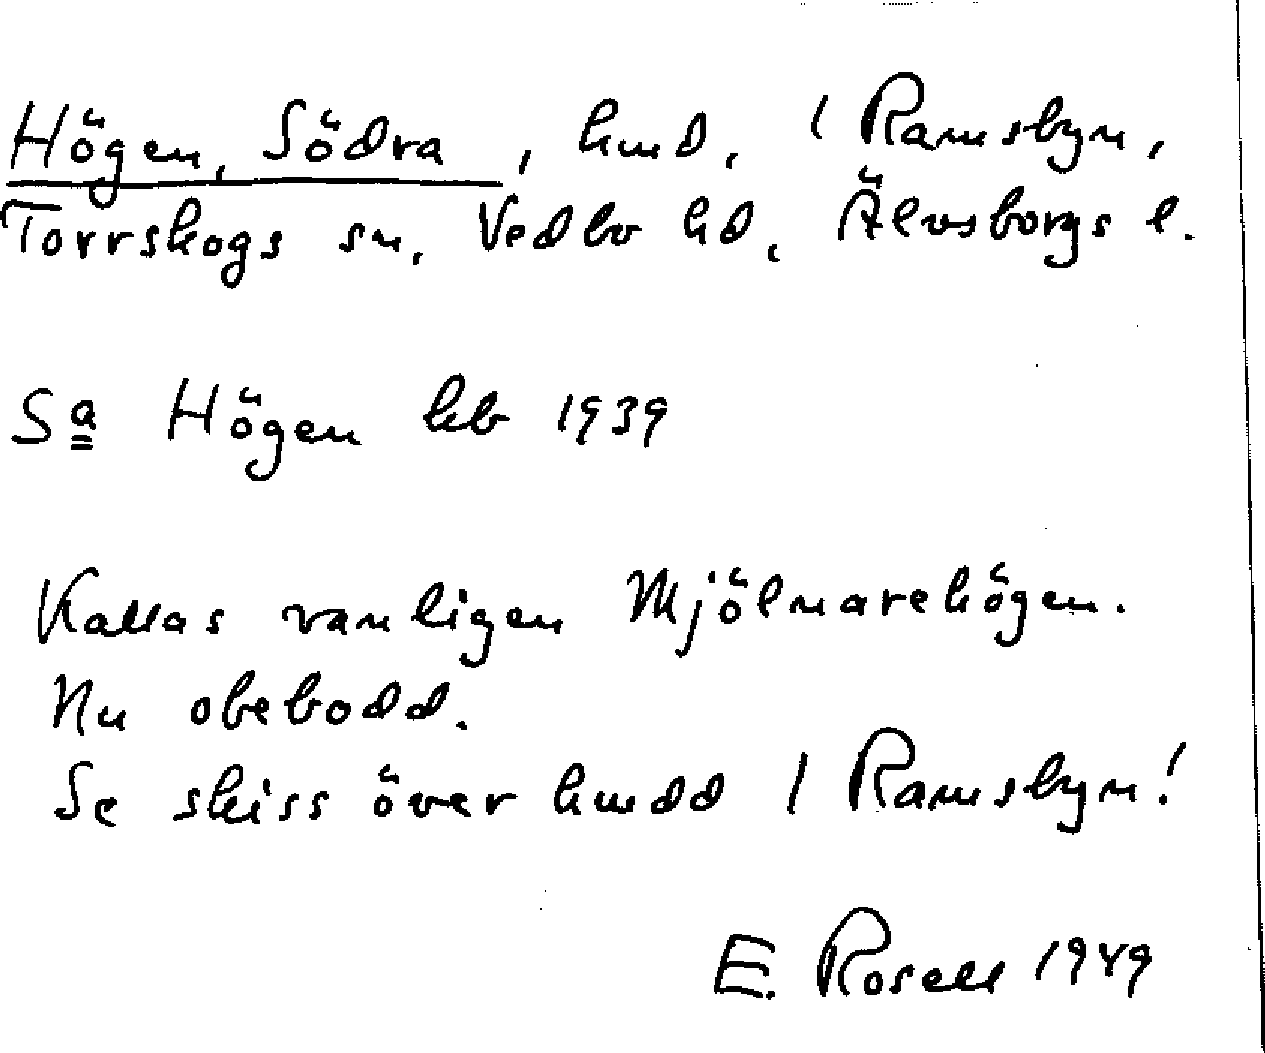 Högen, Södra, hmd, 1 Ramsbyn,
Torrskogs sn, Vedbo hd, Älvsborgs l.
Sa Högen kb 1939
Kallas vanligen Mjölnarehögen.
Nu obebodd.
Se skiss över hmdd 1 Ramsbyn!
E. Rosell 1949